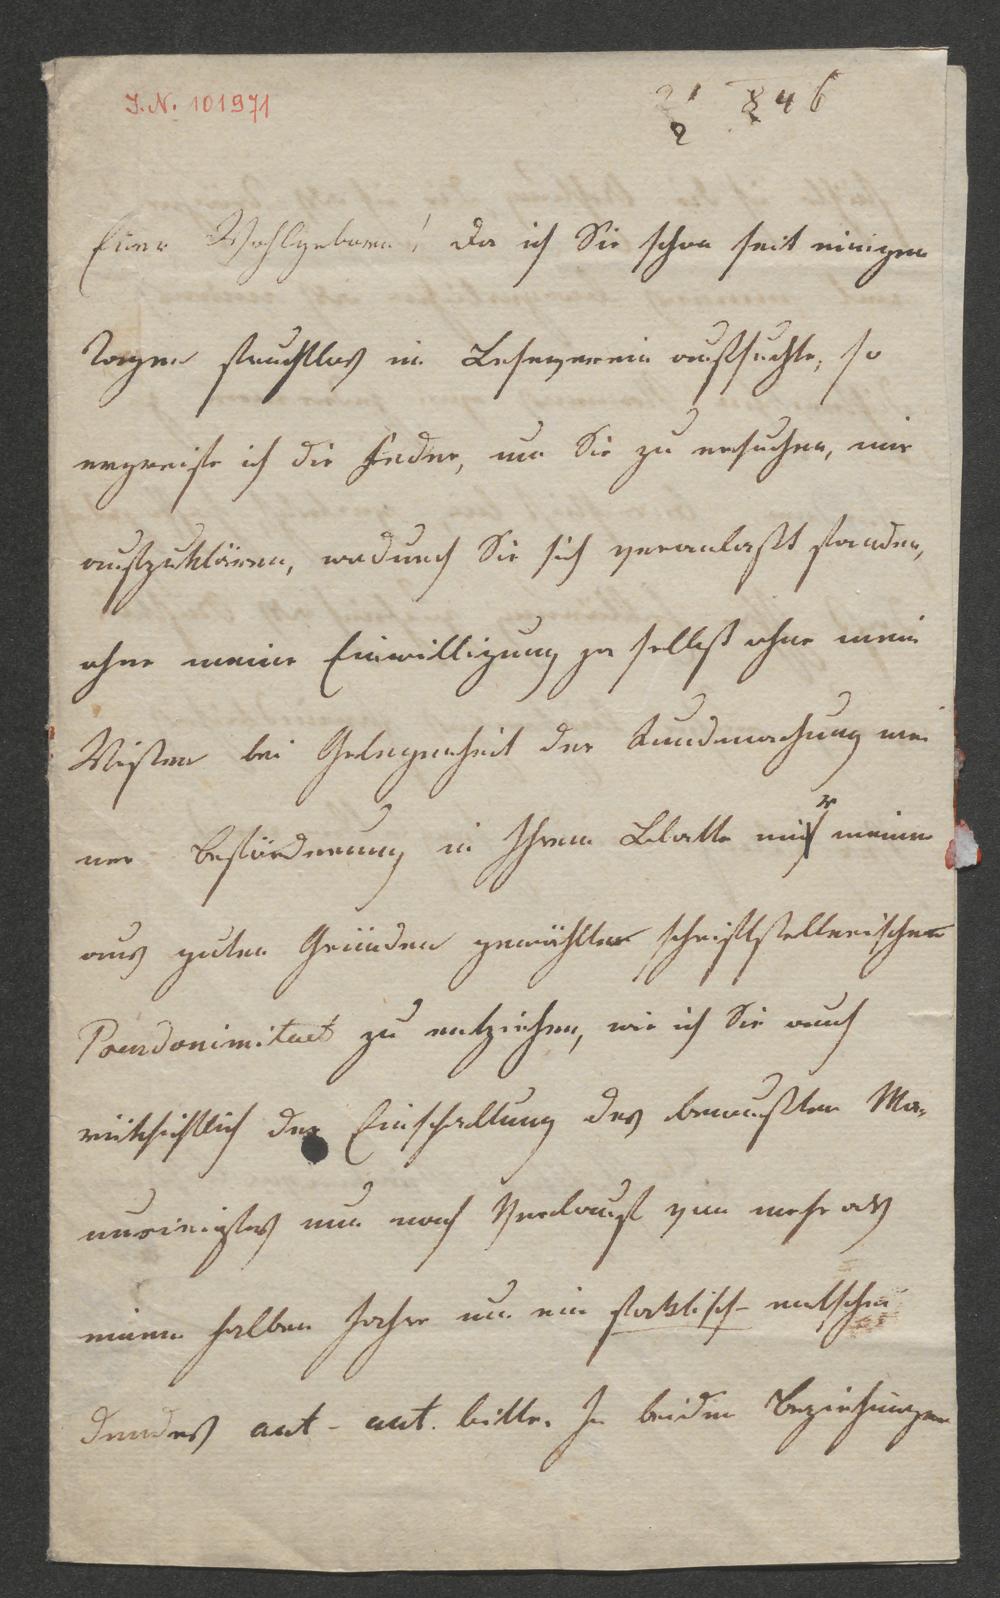 I.N. 101971
21 846
2
Euer Wohlgeboren! Da ich Sie schon seit einigen
Tagen fruchtlos im Leseverein aufsuchte, so
ergreife ich die Feder, um Sie zu ersuchen, mir
aufzuklären, wodurch Sie sich veranlaßt fanden,
ohne meine Einwilligung ja selbst ohne mein
Wissen bei Gelegenheit der Kundmachung mei
ner Beförderung in Ihrem Blatte mich meiner
aus guten Gründen gewählten schriftstellerischen
Pseudonimitaet zu entziehen, wie ich Sie auch
rücksichtlich der Einschaltung des bewußten Ma-
nuscriptes nun nach Verlauf von mehr als
einem halben Jahre um ein faktisch-entschei
dendes aut-aut. bitte. In beiden Beziehungen